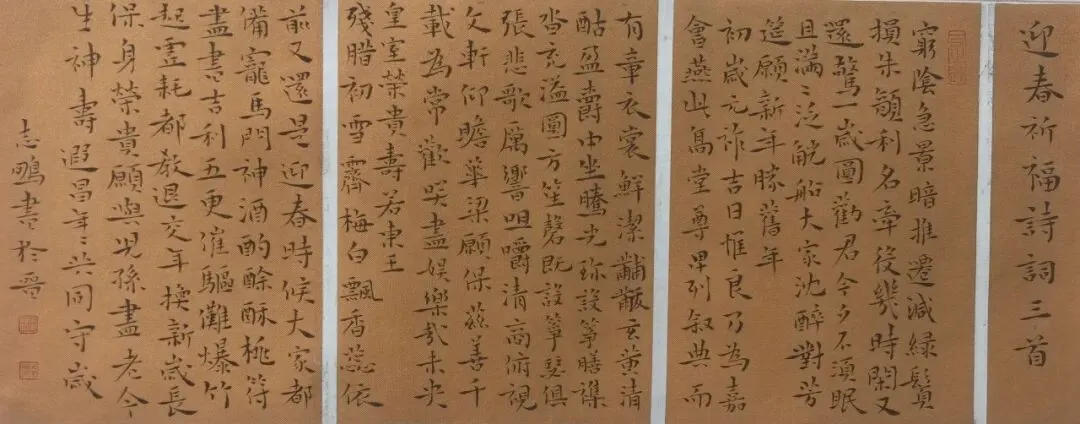 迎春祈福詩詞三首
窮陰急景暗推遷減緑鬢
損朱顏利名牽役幾時閑又
還驚一歲圓勸君今夕不須眠
且滿〻泛觥船大家沈醉對芳
筵願新年勝舊年
初歲元祚吉日惟良乃為嘉
會燕此髙堂尊卑列叙典而
有章衣裳鮮潔黼黻玄黃清
酤盈爵中坐騰光珎設華膳襍
沓充溢圓方笙磬既設箏瑟俱
張悲歌厲響咀嚼清商俯視
文軒仰瞻華梁願保茲善千
載為常歡笑盡娛樂哉未央
皇室榮貴壽若東王
殘腊初雪霽梅白飄香蕊依
前又還是迎春時候大家都
備竈馬門神酒酌酴酥桃符
盡書吉利五更催驅灘爆竹
起虛耗都教退交年換新歲長
保身榮貴願與兒孫盡老今
生神壽遐昌年〻共同守歲
志鵬書於晉